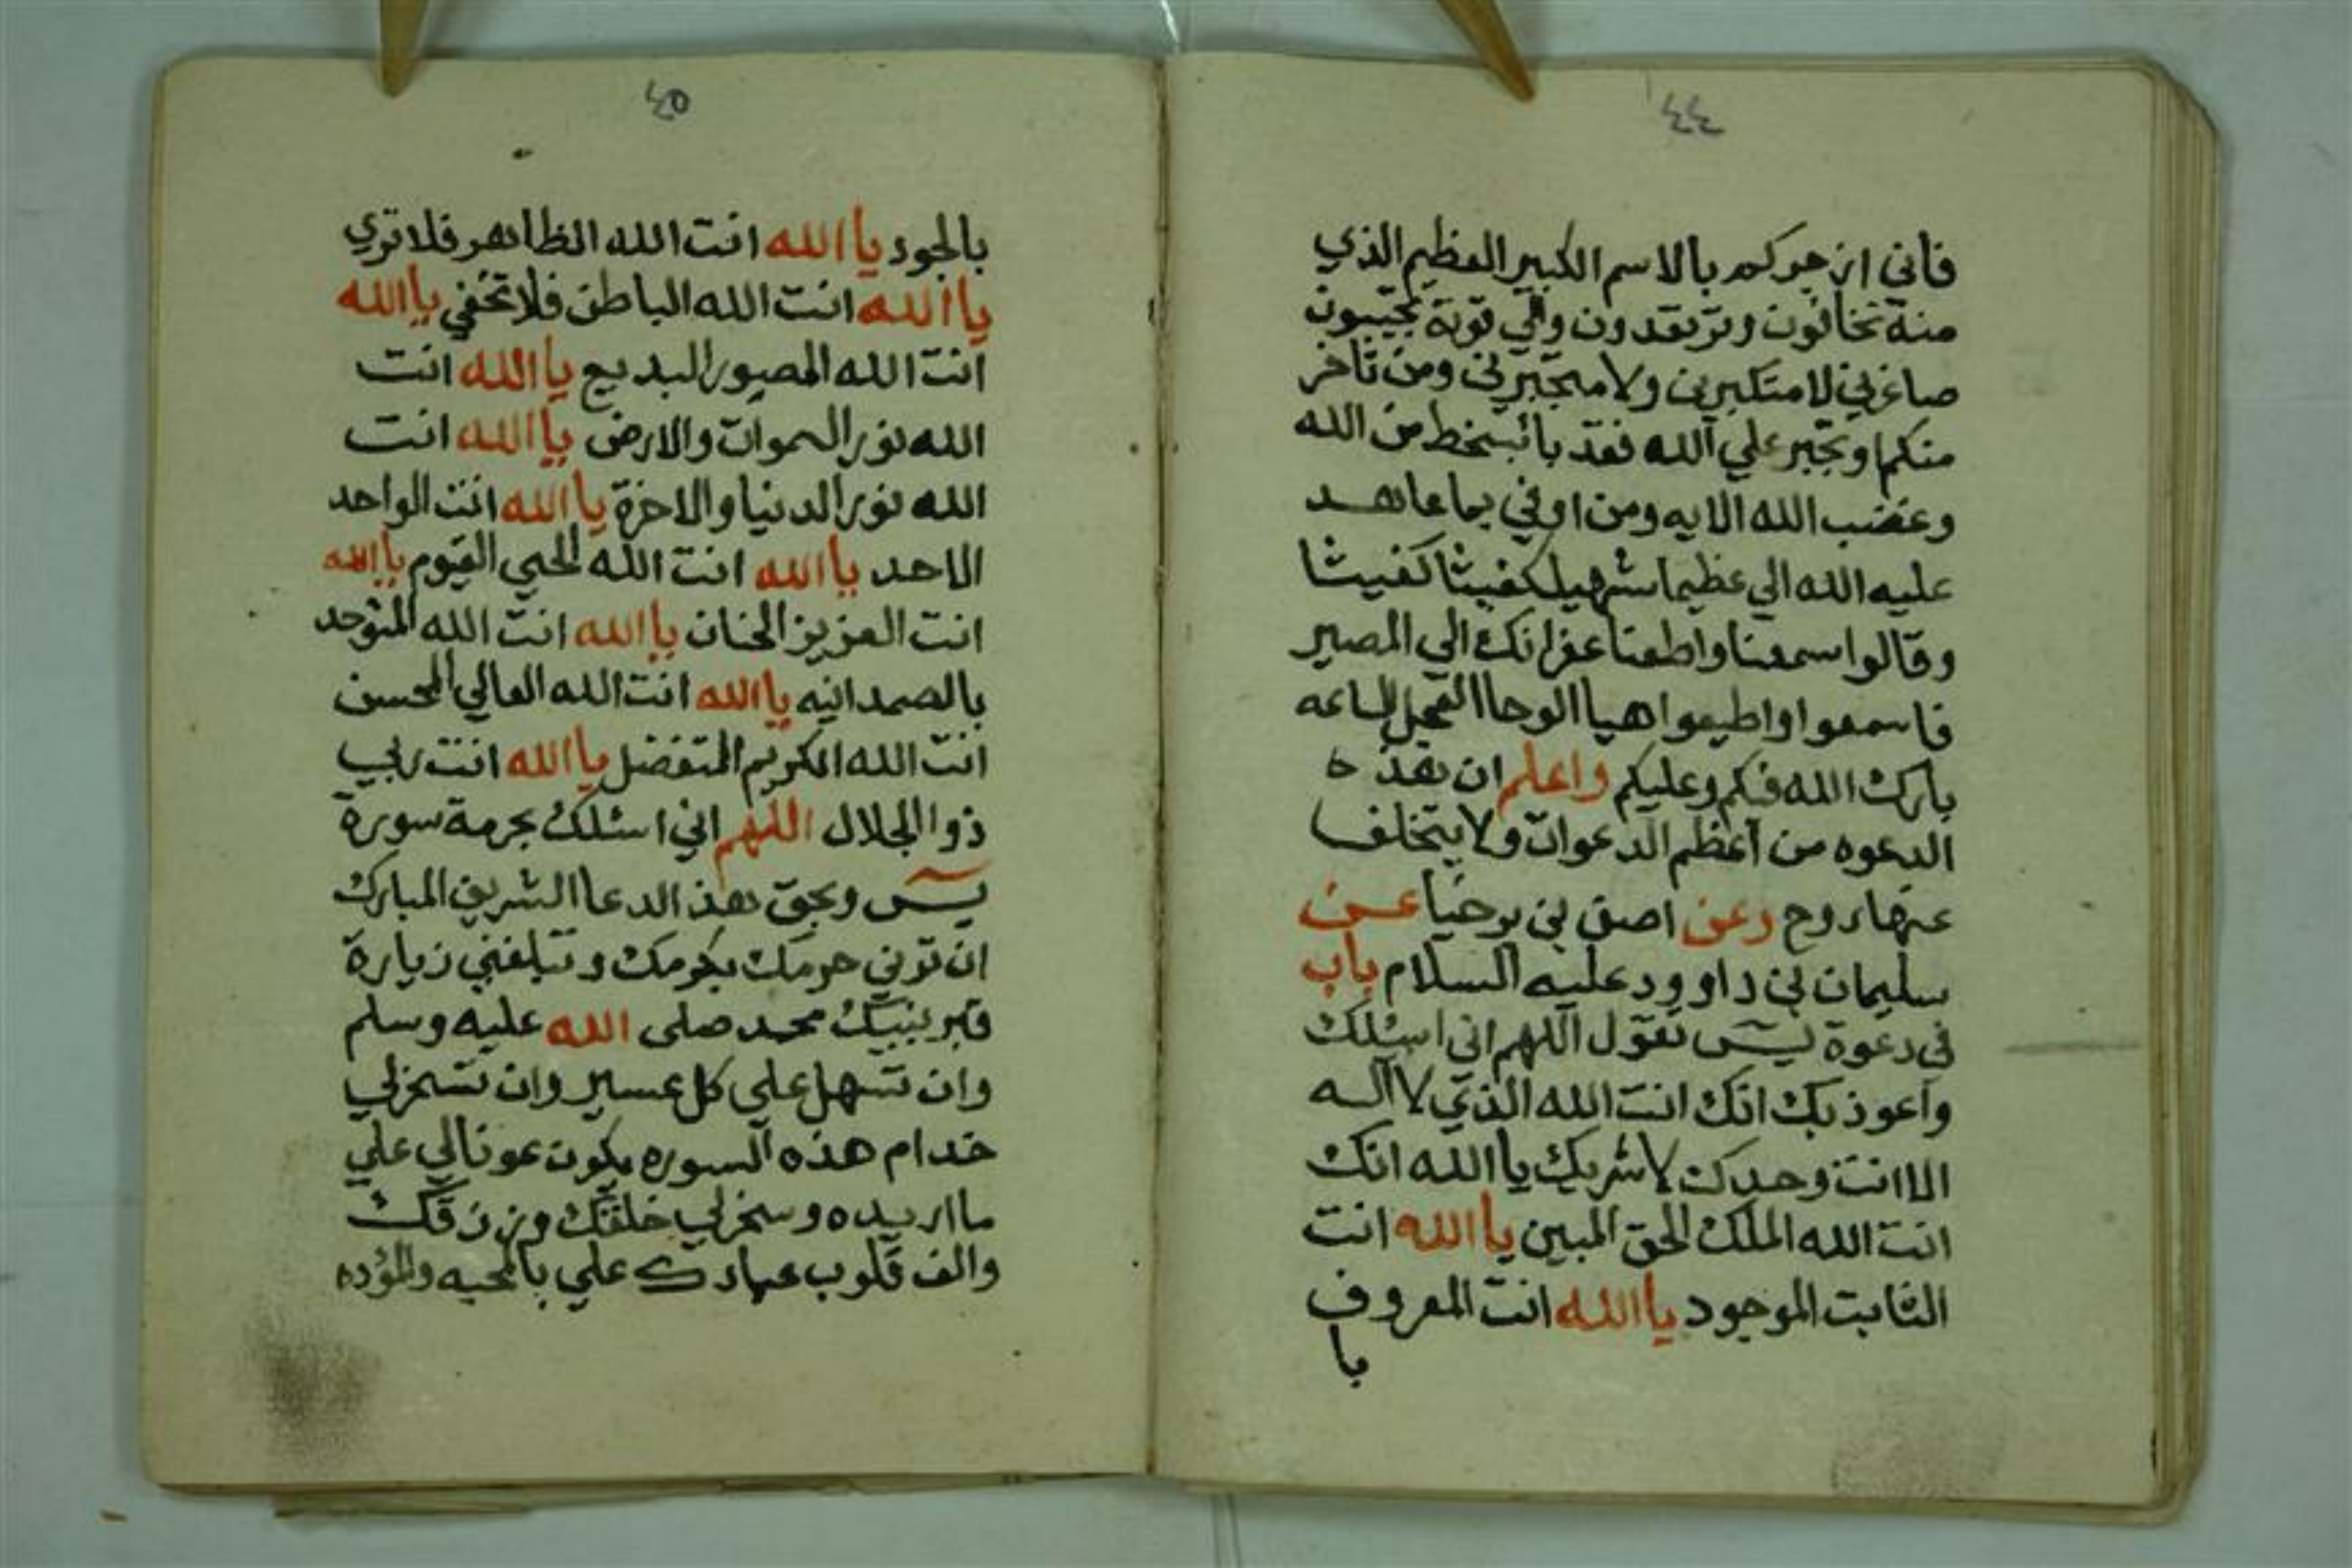 ٤٤
فاني ازجركم بالاسم الكبير العظيم الذي
منه تخافون وترتعدون والي قوته تجيبون
صاغرين لا متكبرين ولا متجبرين ومن تاخر
منكم وتجبر علي الله فقد با بسخط من الله
وغضب الله الايه ومن اوفي بما عاهد
عليه الله الي عظيما شهيل كفيثا كفيثا
وقالوا سمعنا واطعنا غفرانك الي المصير
فاسمعوا واطيعوا هيا الوحا العجل الساعه
بارك الله فيكم وعليكم واعلم ان هذه
الدعوه من اعظم الدعوات ولا يتخلف
عنها روح وعن اصف بن برخيا عن
سليمان بن داوود عليه السلام باب
في دعوة يس تقول اللهم اني اسئلك
واعوذ بك انك انت الله الذي لا اله
الا انت وحدك لا شريك يا الله انك
انت الله الملك الحق المبين يا الله انت
الثابت الموجود يا الله انت المعروف
با
٤٥
بالجود يا الله انت الله الظاهر فلا تري
يا الله انت الله الباطن فلا تخفي يا الله
انت الله المصور البديع يا الله انت
الله نور السموات والارض يا الله انت
الله نور الدنيا والاخرة يا الله انت الواحد
الاحد يا الله انت الله الحي القيوم يا الله
انت العزيز الحنان يا الله انت الله المتوحد
بالصمدانيه يا الله انت الله العالي المحسن
انت الله الكريم المتفضل يا الله انت ربي
ذوا الجلال اللهم اني اسئلك بحرمة سورة
يس وبحق هذ الدعا الشريف المبارك
ان ترني حرمك بكرمك وتبلغني زيارة
قبر نبيك محمد صلى الله عليه وسلم
وان تسهل علي كل عسير وان تسخر لي
خدام هذه السوره يكون عونا لي علي
ما اريده وسخر لي خلقك ورزقك
والف قلوب عبادك علي بالمحبه والموده